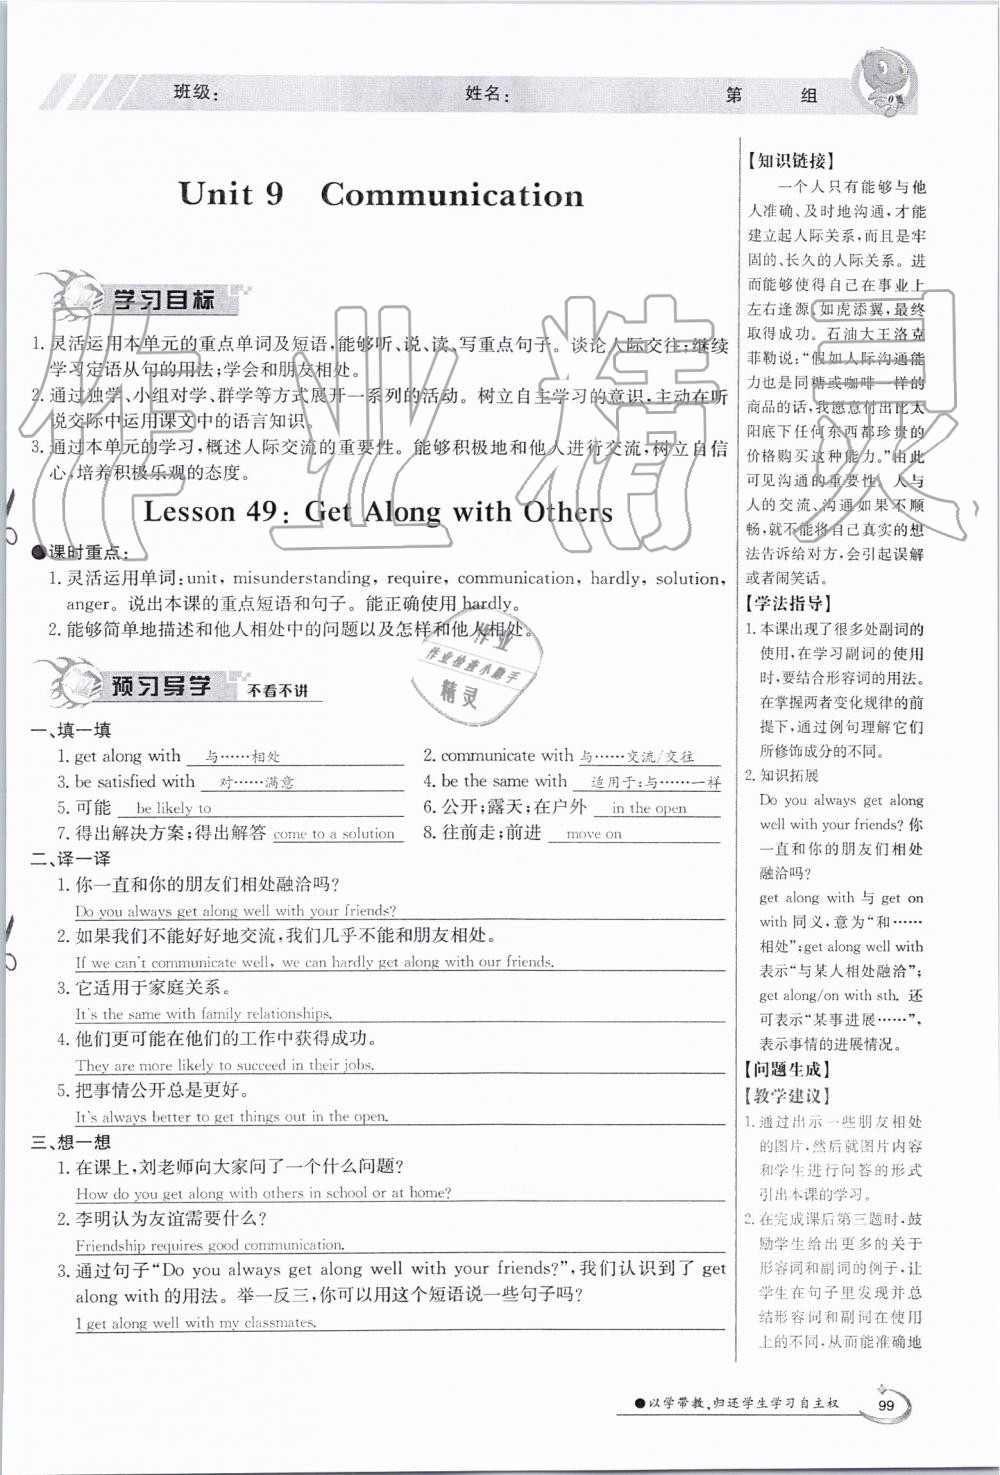 班级：　姓名：　第　组
Unit 9　Communication
学习目标
1. 灵活运用本单元的重点单词及短语,能够听、说、读、写重点句子。谈论人际交往;继续
学习定语从句的用法;学会和朋友相处。
2. 通过独学、小组对学、群学等方式展开一系列的活动。树立自主学习的意识,主动在听
说交际中运用课文中的语言知识。
3. 通过本单元的学习,概述人际交流的重要性。能够积极地和他人进行交流,树立自信
心,培养积极乐观的态度。
Lesson 49: Get Along with Others
●课时重点:
1. 灵活运用单词:unit, misunderstanding, require, communication, hardly, solution,
anger。说出本课的重点短语和句子。能正确使用 hardly。
2. 能够简单地描述和他人相处中的问题以及怎样和他人相处。
预习导学 不看不讲
一、填一填
1. get along with 与……相处 2. communicate with 与……交流/交往
3. be satisfied with 对……满意 4. be the same with 适用于;与……一样
5. 可能 be likely to 6. 公开;露天;在户外 in the open
7. 得出解决方案;得出解答 come to a solution 8. 往前走;前进 move on
二、译一译
1. 你一直和你的朋友们相处融洽吗?
Do you always get along well with your friends?
2. 如果我们不能好好地交流,我们几乎不能和朋友相处。
If we can't communicate well, we can hardly get along with our friends.
3. 它适用于家庭关系。
It's the same with family relationships.
4. 他们更可能在他们的工作中获得成功。
They are more likely to succeed in their jobs.
5. 把事情公开总是更好。
It's always better to get things out in the open.
三、想一想
1. 在课上,刘老师向大家问了一个什么问题?
How do you get along with others in school or at home?
2. 李明认为友谊需要什么?
Friendship requires good communication.
3. 通过句子“Do you always get along well with your friends?”,我们认识到了 get
along with 的用法。举一反三,你可以用这个短语说一些句子吗?
I get along well with my classmates.
【知识链接】
一个人只有能够与他
人准确、及时地沟通,才能
建立起人际关系,而且是牢
固的、长久的人际关系。进
而能够使得自己在事业上
左右逢源、如虎添翼,最终
取得成功。石油大王洛克
菲勒说:“假如人际沟通能
力也是同糖或咖啡一样的
商品的话,我愿意付出比太
阳底下任何东西都珍贵的
价格购买这种能力。”由此
可见沟通的重要性。人与
人的交流、沟通如果不顺
畅,就不能将自己真实的想
法告诉给对方,会引起误解
或者闹笑话。
【学法指导】
1. 本课出现了很多处副词的
使用,在学习副词的使用
时,要结合形容词的用法。
在掌握两者变化规律的前
提下,通过例句理解它们
所修饰成分的不同。
2. 知识拓展
Do you always get along
well with your friends? 你
一直和你的朋友们相处
融洽吗?
get along with 与 get on
with 同义,意为“和……
相处”;get along well with
表示“与某人相处融洽”;
get along/on with sth. 还
可表示“某事进展……”,
表示事情的进展情况。
【问题生成】
【教学建议】
1. 通过出示一些朋友相处
的图片,然后就图片内容
和学生进行问答的形式
引出本课的学习。
2. 在完成课后第三题时,鼓
励学生给出更多的关于
形容词和副词的例子,让
学生在句子里发现并总
结形容词和副词在使用
上的不同,从而能准确地
●以学带教,归还学生学习自主权 99
作业精灵
作业
作业检查小助手
精灵